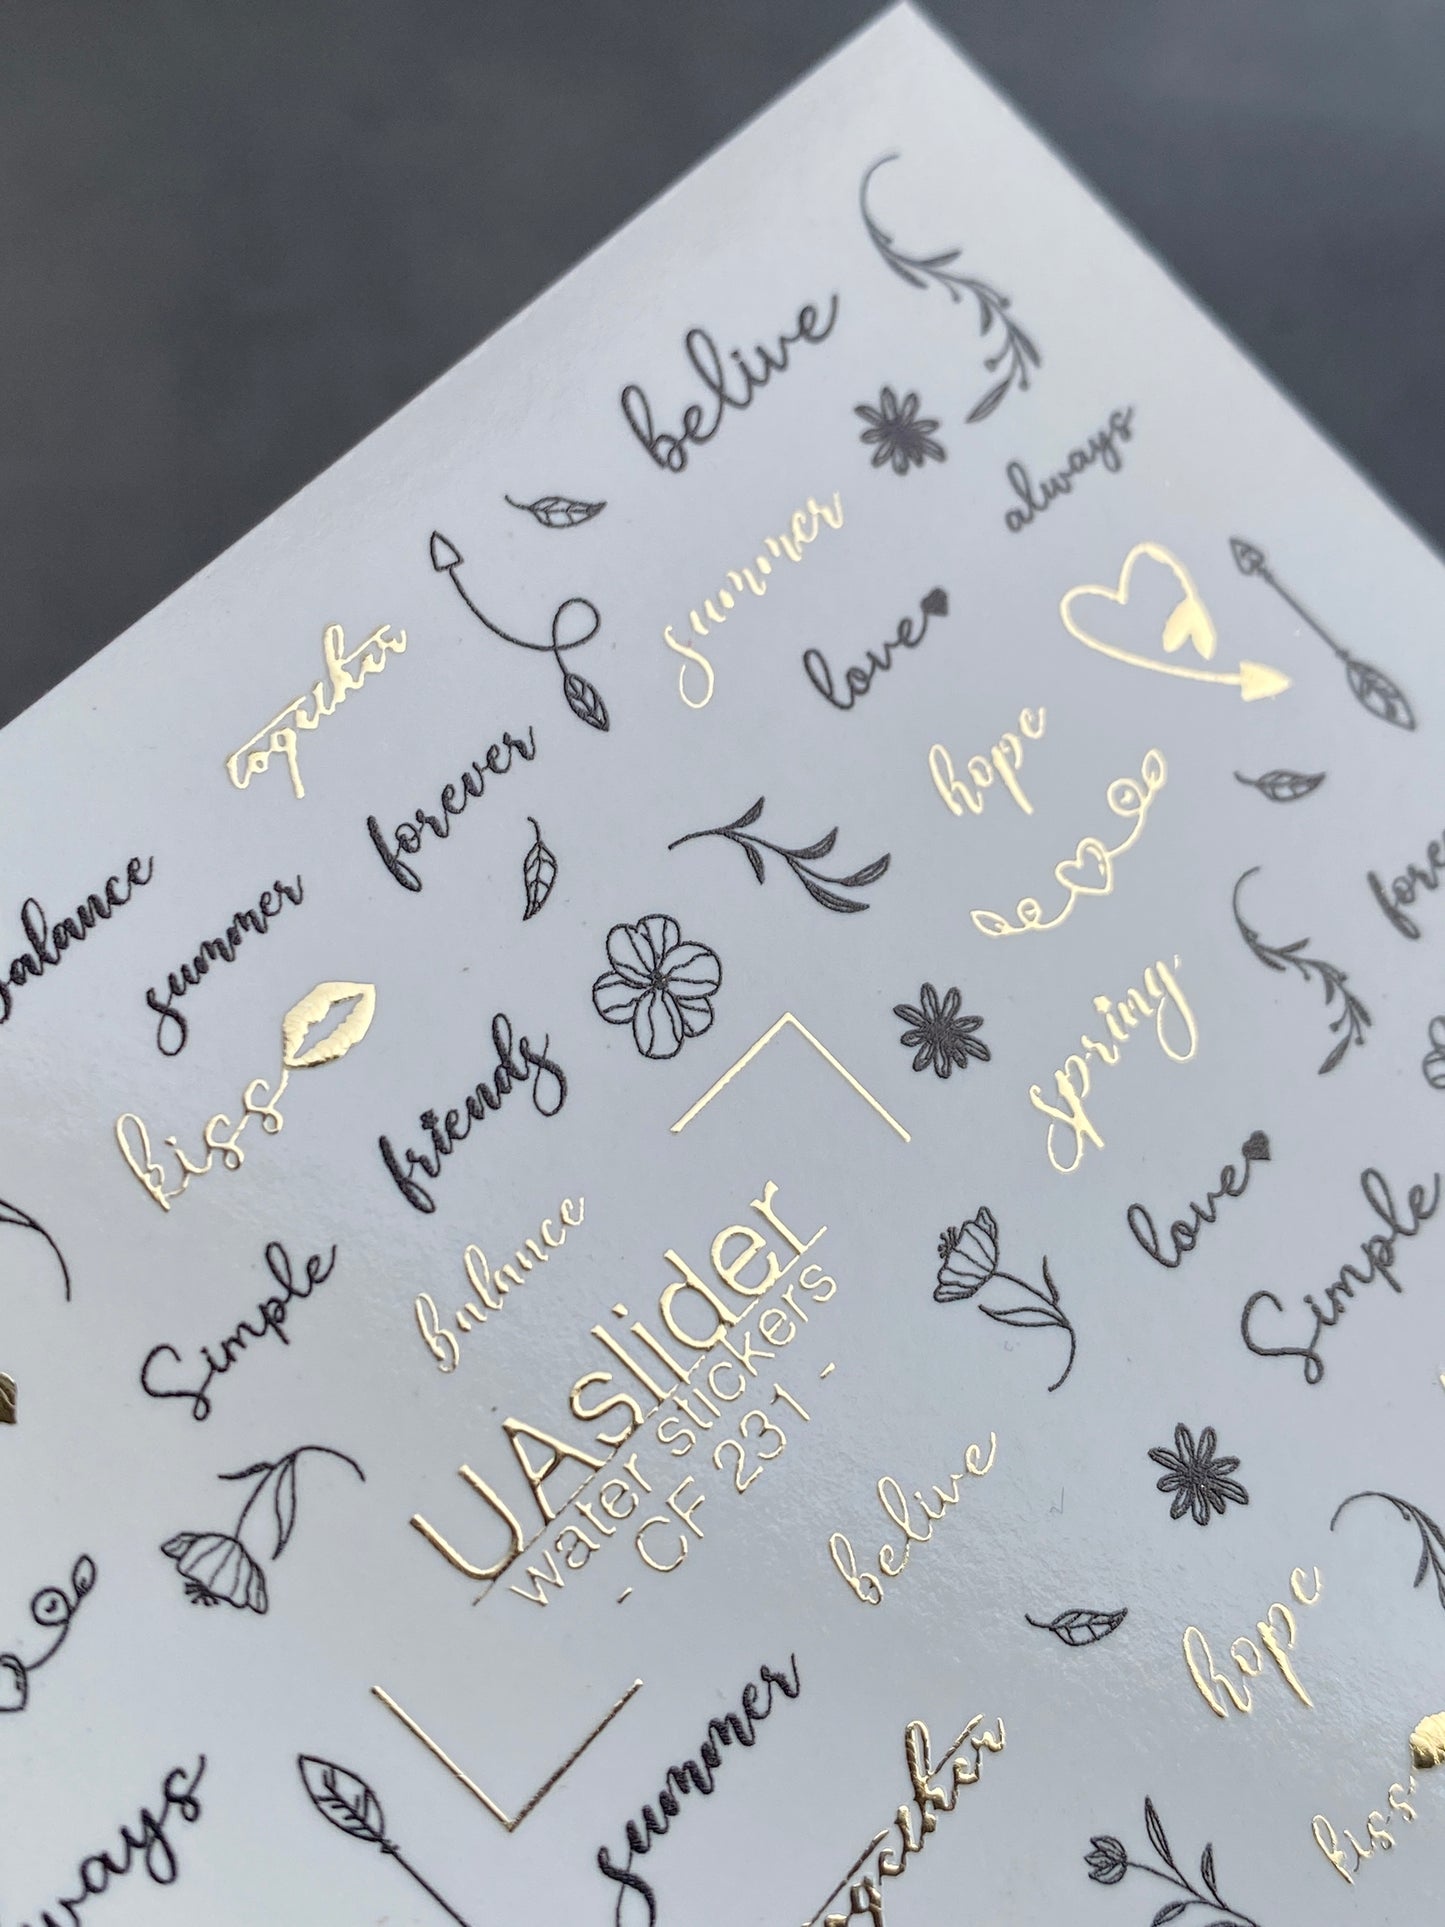 belive
always
summer
together
love
forever
hope
balance
summer
fore
kiss
friends
spring
love
Simple
Balance
Simple
UAslider
water stickers
- CF 231 -
belive
hope
summer
together
kiss
ways